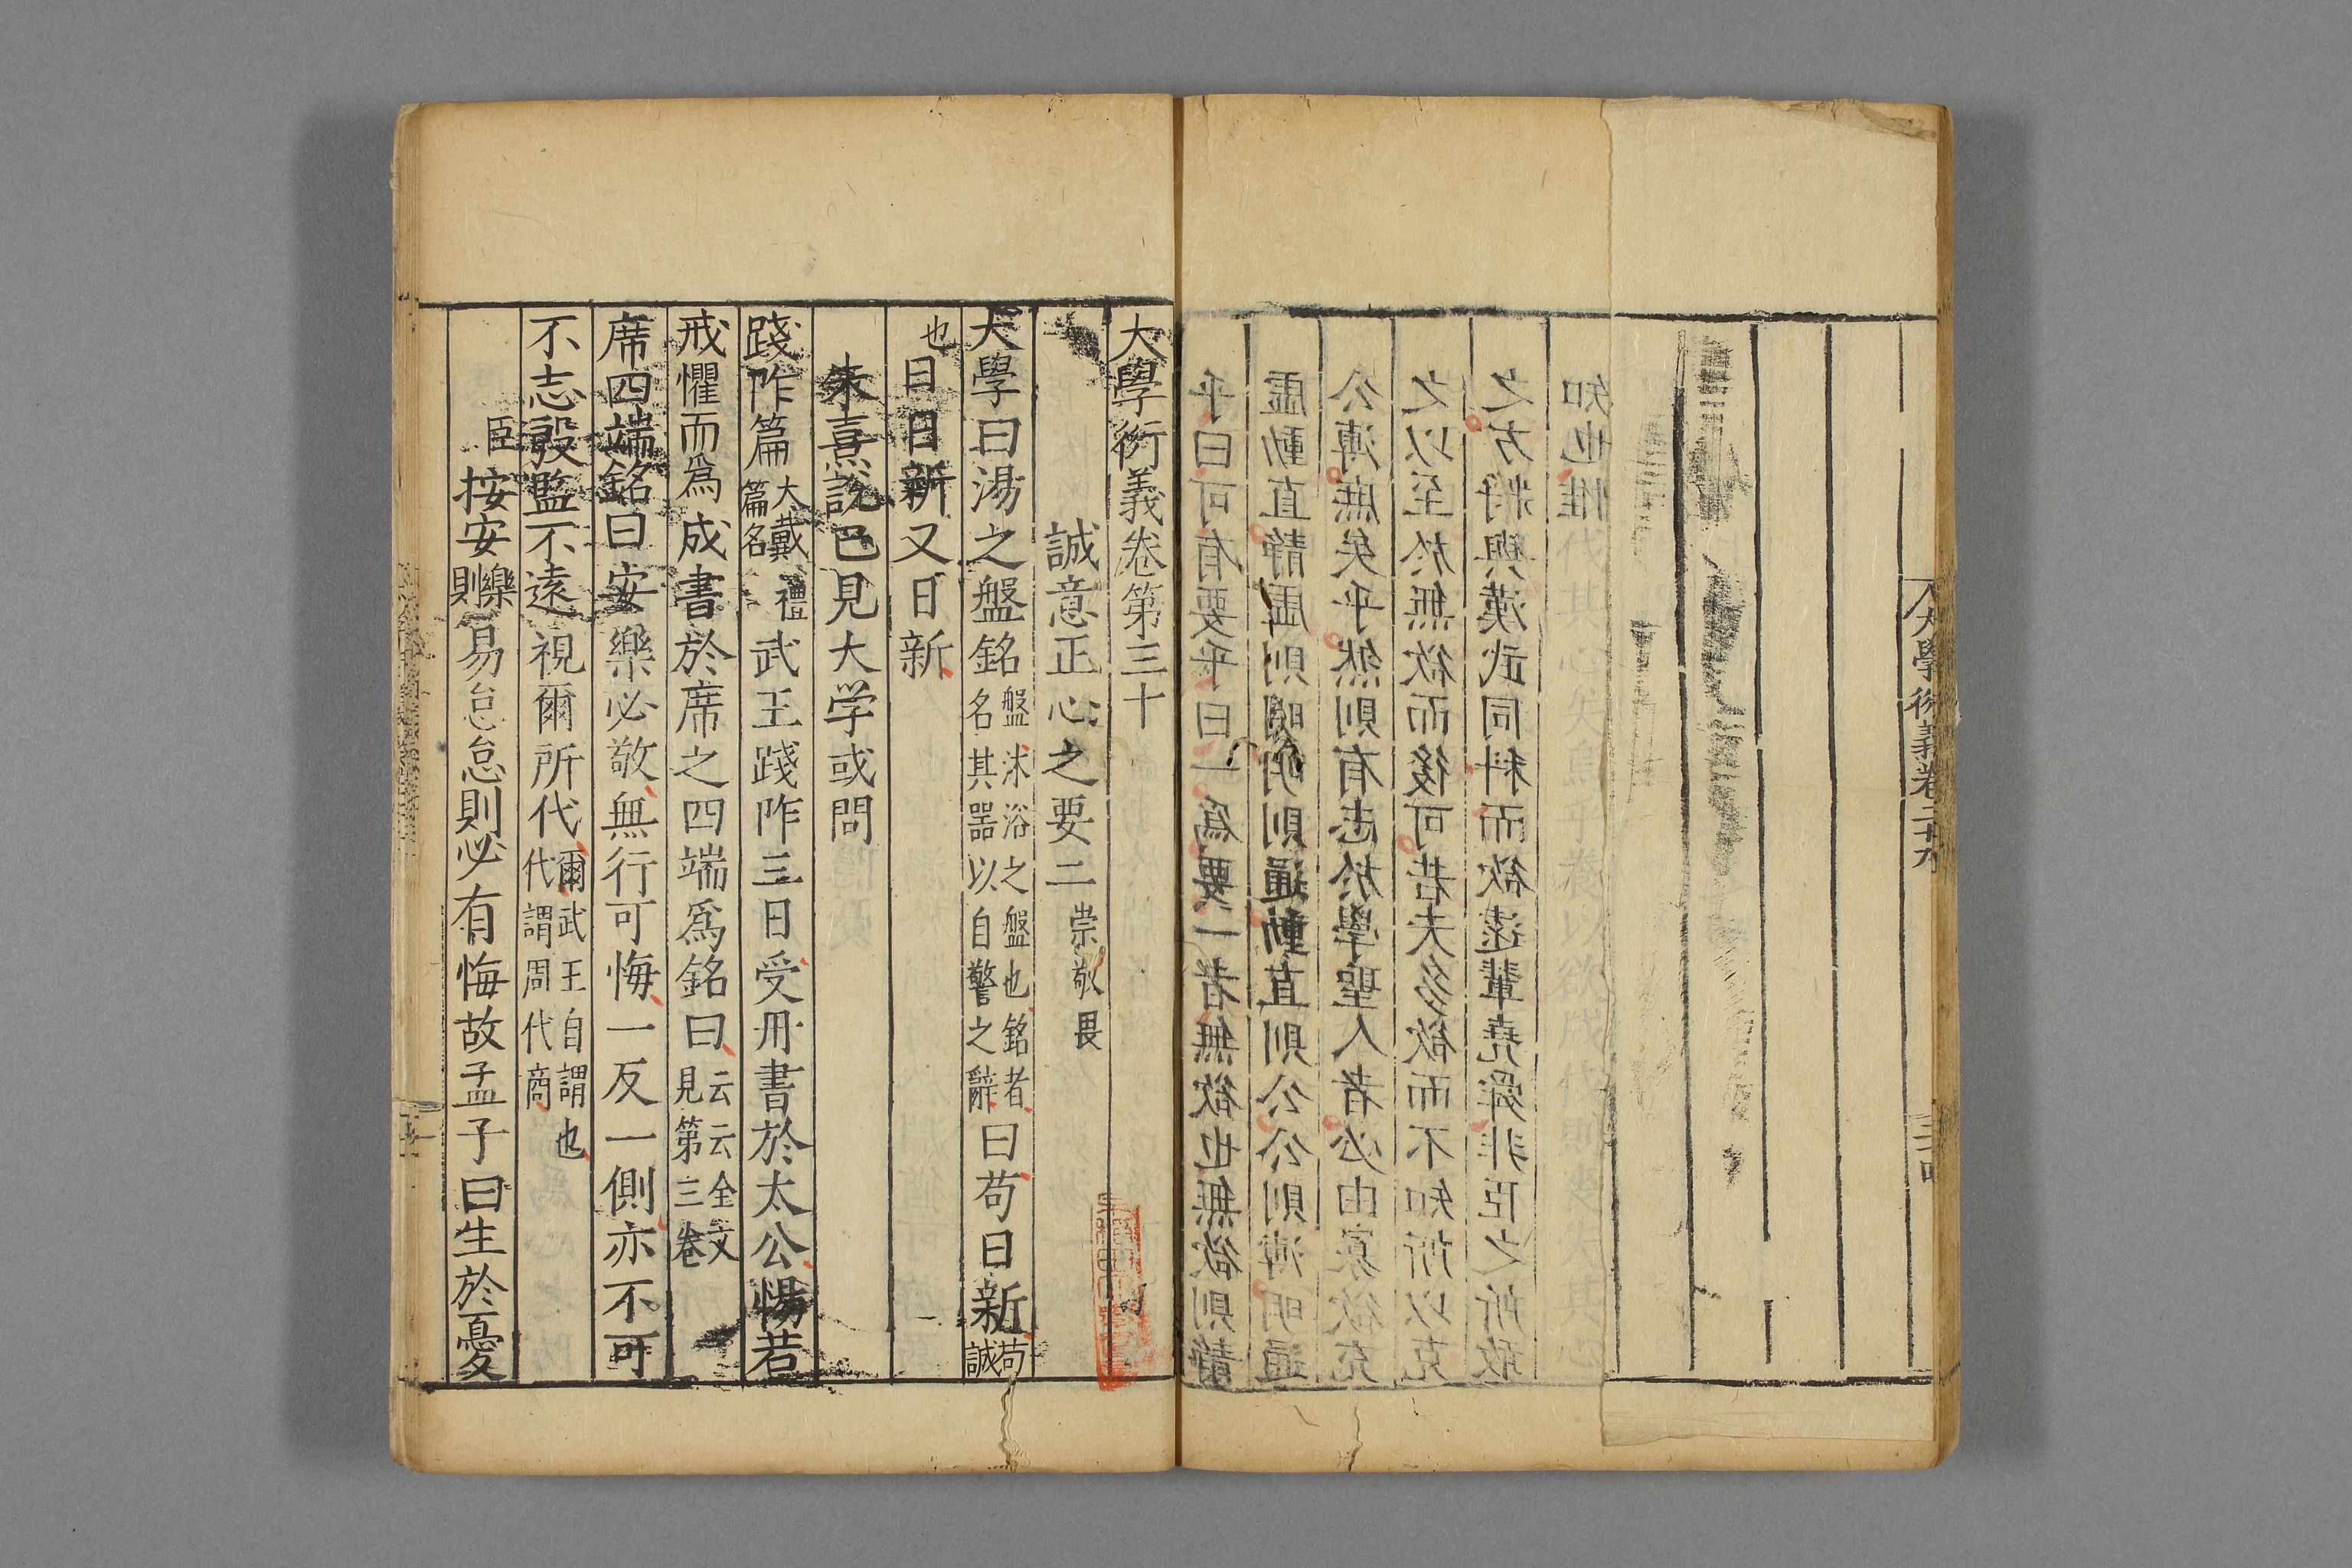 大學衍義卷二十九
乎曰可有要乎曰一爲要一者無欲也無欲則靜
虛動直靜虛則明明則通動直則公公則溥明通
公溥庶矣乎然則有志於學聖人者必由寡欲充
之以至於無欲而後可若夫多欲而不知所以克
之方將與漢武同科而欲遠輩堯舜非臣之所敢
知也惟
大學衍義卷第三十
誠意正心之要二 崇敬畏
大學曰湯之盤銘 盤沐浴之盤也銘者名其器以自警之辭 曰苟日新 苟誠
也 日日新又日新
朱熹說已見大学或問
踐阼篇 大戴禮篇名 武王踐阼三日受冊書於太公惕若
戒懼而爲戒書於席之四端爲銘曰 云云全文見第三卷
席四端銘曰安樂必敬無行可悔一反一側亦不可
不志殷監不遠視爾所代 爾武王自謂也代謂周代商
臣按安樂則易怠怠則必有悔故孟子曰生於憂